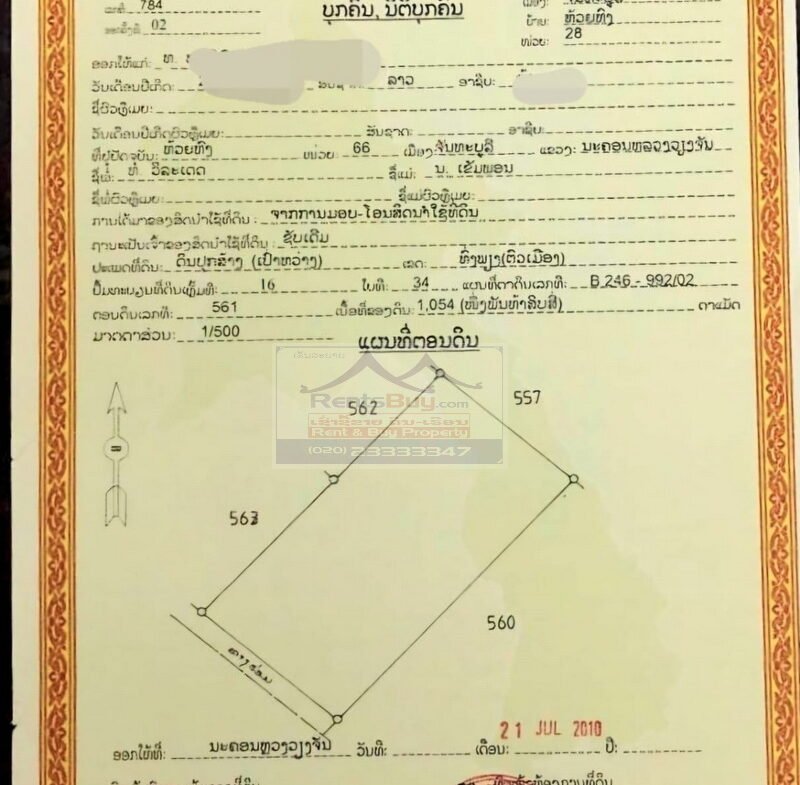 ເລກທີ 784
ບຸກຄົນ, ນິຕິບຸກຄົນ
ອອກຄັ້ງທີ 02
ບ້ານ: ຫ້ວຍຫົງ
ໜ່ວຍ: 28
ອອກໃຫ້ແກ່: ທ.
ວັນເດືອນປີເກີດ: ສັນຊາດ: ລາວ ອາຊີບ:
ຊື່ຜົວຫຼືເມຍ:
ວັນເດືອນປີເກີດຜົວຫຼືເມຍ: ສັນຊາດ: ອາຊີບ:
ທີ່ຢູ່ປັດຈຸບັນ: ຫ້ວຍຫົງ ໜ່ວຍ: 66 ເມືອງ: ຈັນທະບູລີ ແຂວງ: ນະຄອນຫລວງວຽງຈັນ
ຊື່ພໍ່: ທ໌ ວິລະເດດ ຊື່ແມ່: ນ. ເຂັມພອນ
ຊື່ພໍ່ຜົວຫຼືເມຍ: ຊື່ແມ່ຜົວຫຼືເມຍ:
ການໄດ້ມາຂອງສິດນຳໃຊ້ທີ່ດິນ: ຈາກການມອບ-ໂອນສິດນຳໃຊ້ທີ່ດິນ
ຖານະເປັນເຈົ້າຂອງສິດນຳໃຊ້ທີ່ດິນ: ຊັບເດີມ
ປະເພດທີ່ດິນ: ດິນປຸກສ້າງ (ເປົ່າຫວ່າງ) ເຂດ: ທົ່ງພຽງ(ຕົວເມືອງ)
ປຶ້ມທະບຽນທີ່ດິນເຫຼັ້ມທີ: 16 ໃບທີ: 34 ແຜນທີ່ຕາດິນເລກທີ: B 246 - 992/02
ຕອນດິນເລກທີ: 561 ເນື້ອທີ່ຂອງດິນ: 1,054 (ໜຶ່ງພັນຫ້າສິບສີ່) ຕາແມັດ
ມາດຕາສ່ວນ: 1/500
ແຜນທີ່ຕອນດິນ
RentsBuy.com
ເຊົ່າຊື້ຂາຍ ດິນ-ເຮືອນ
Rent & Buy Property
(020) 23333347
562
557
563
560
21 JUL 2010
ອອກໃຫ້ທີ່: ນະຄອນຫຼວງວຽງຈັນ ວັນທີ: ເດືອນ: ປີ: